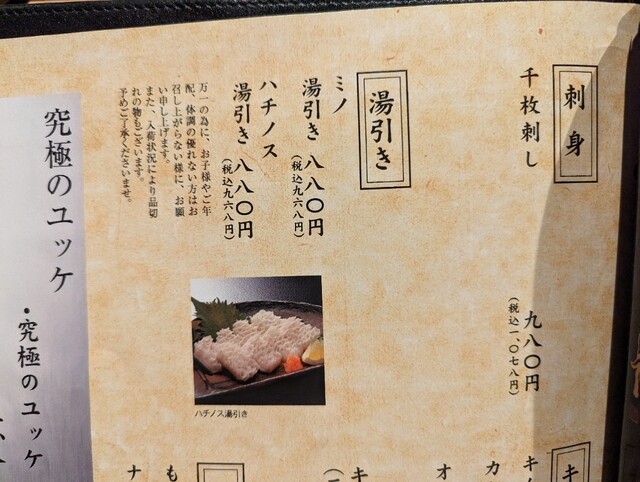 刺身
千枚刺し
九八〇円
(税込一、〇七八円)
湯引き
ミノ
湯引き 八八〇円
(税込九六八円)
ハチノス
湯引き 八八〇円
(税込九六八円)
万一の為に、お子様やご年
配、体調の優れない方はお
召し上がらない様に、お願
い申し上げます。
また、入荷状況により品切
れの物もございます。
予めご了承くださいませ。
ハチノス湯引き
キ
キ
カ
オ
キ
も
ナ
究極のユッケ
・究極のユッケ